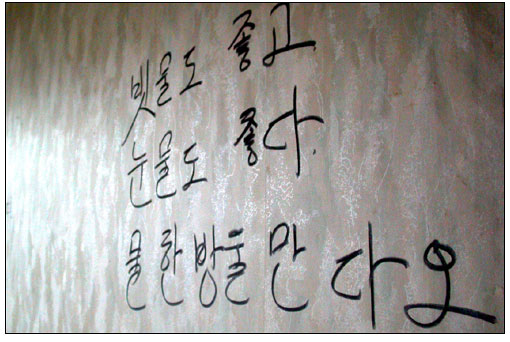 빗물도 좋고
눈물도 좋다.
물 한방울 만 다오